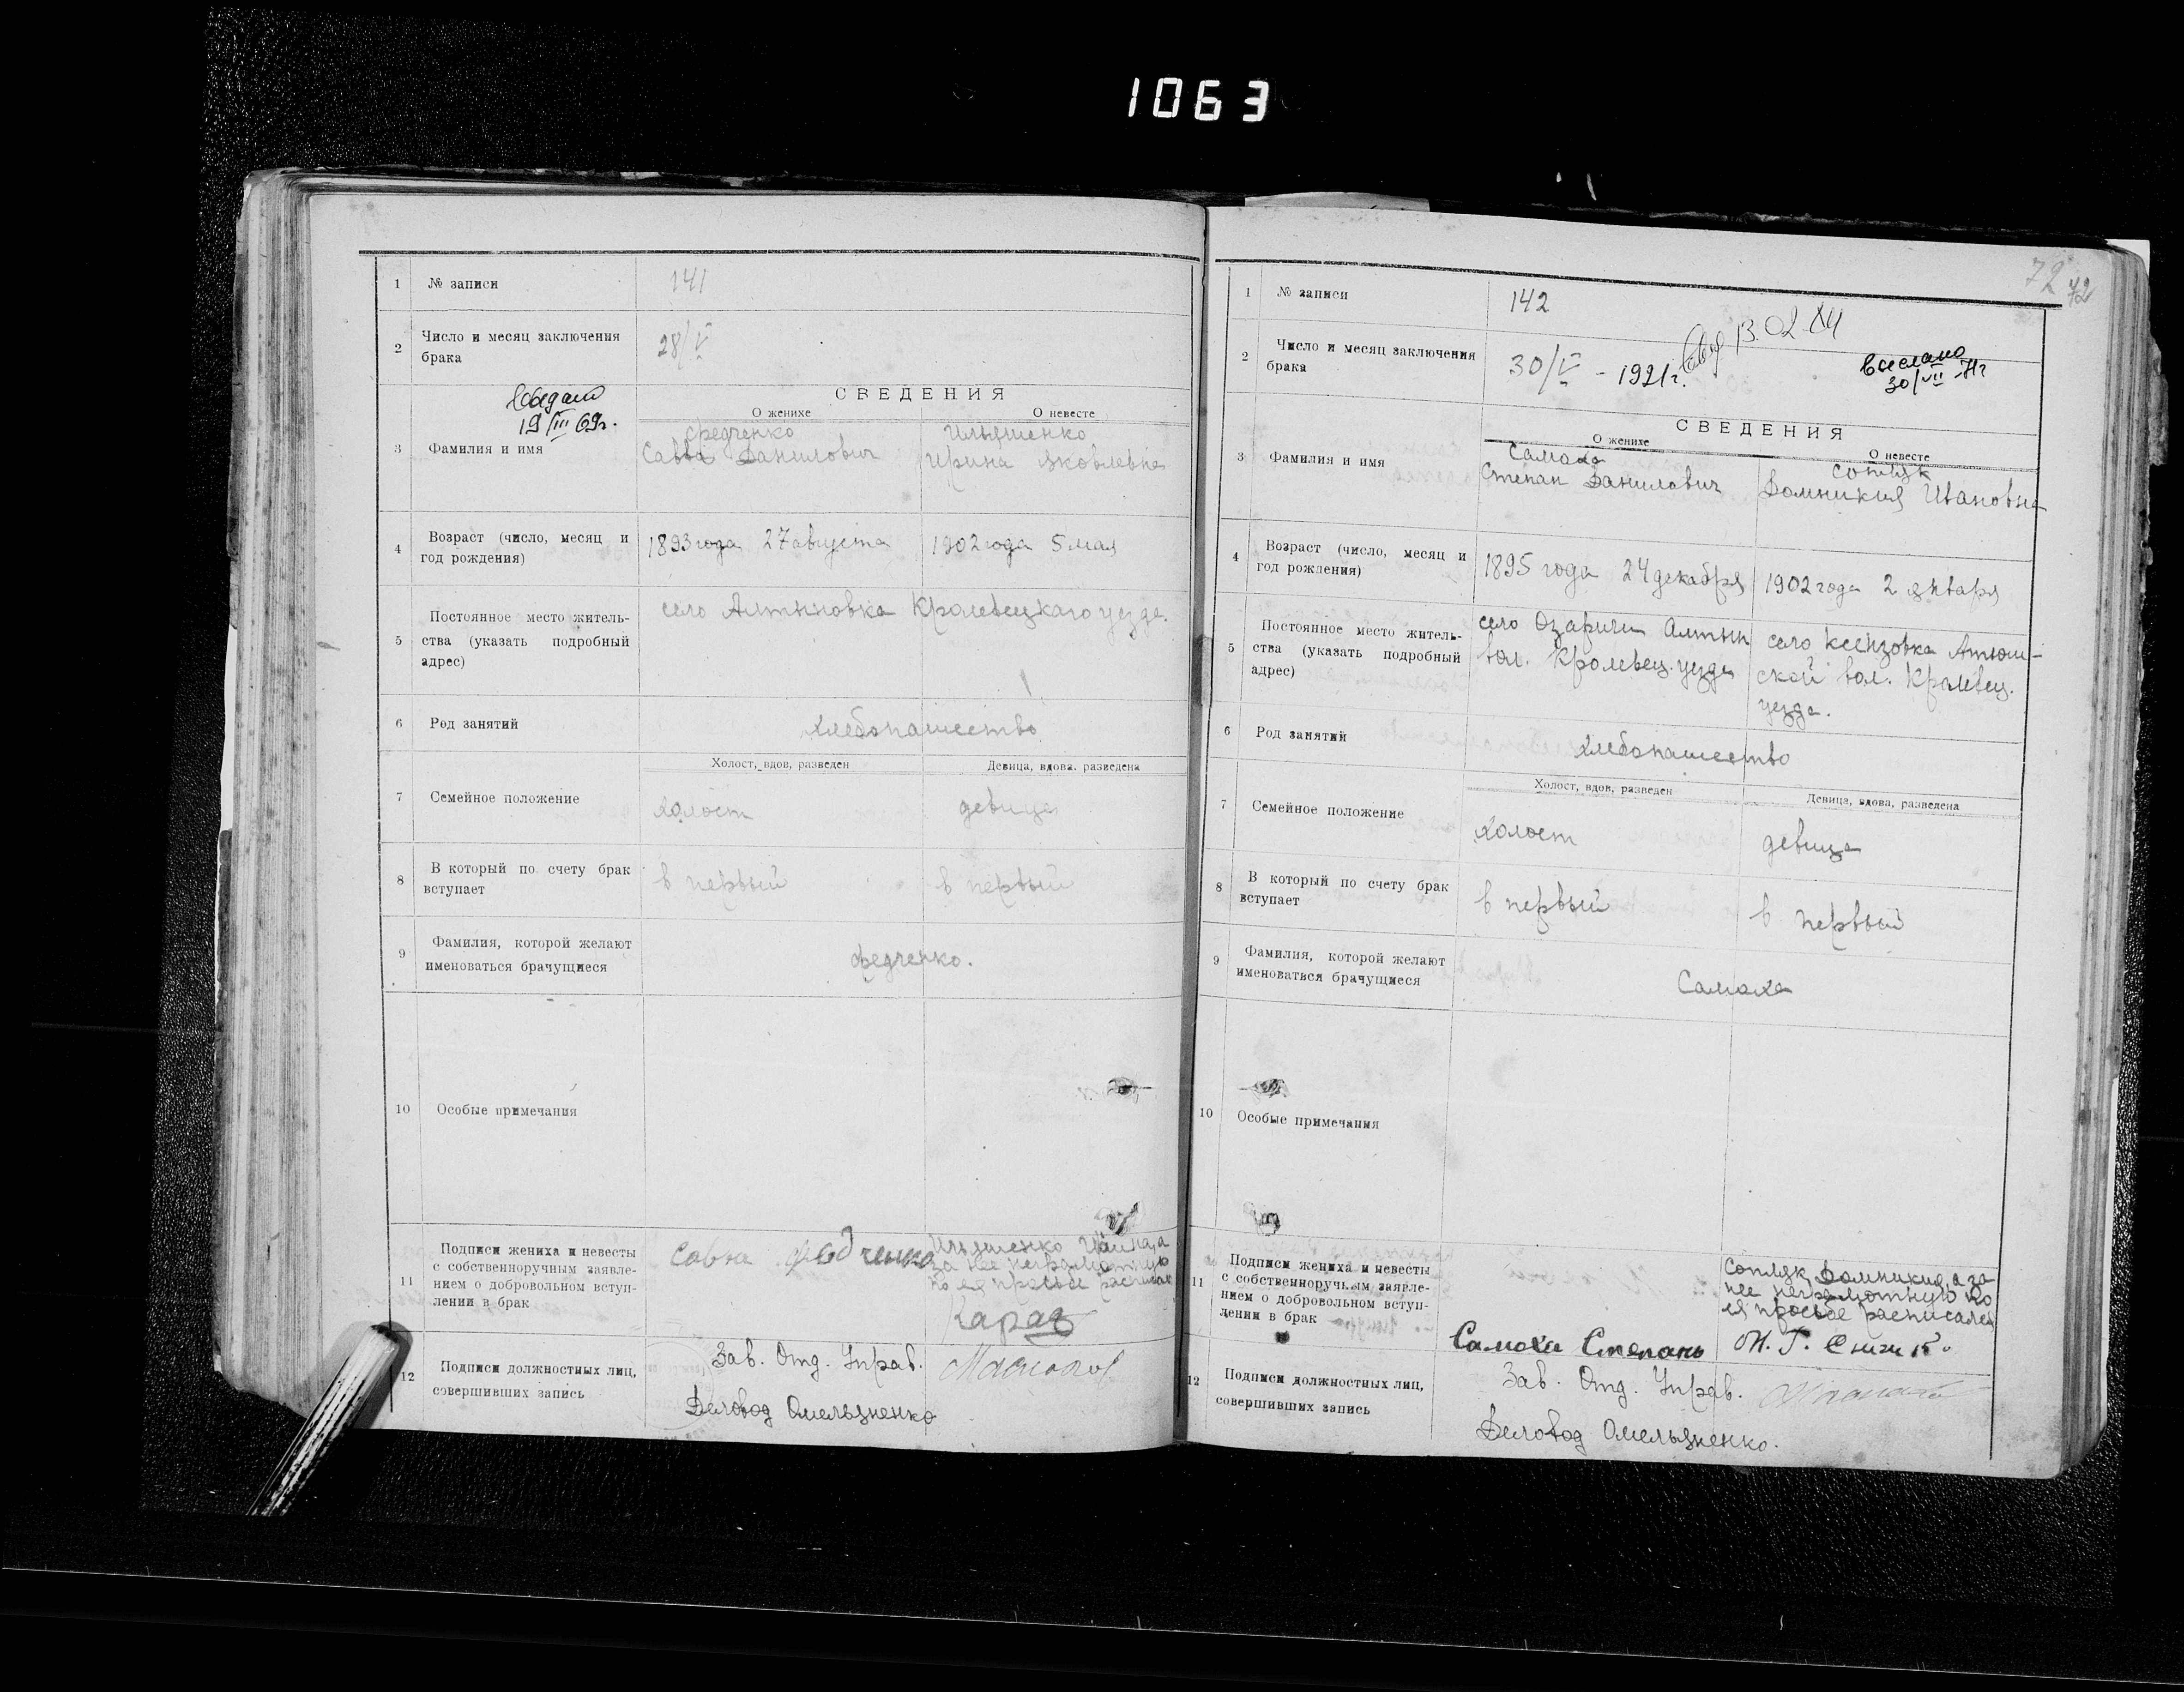 1063
1 № записи 141
2 Число и месяц заключения
брака 28/V
19/III 69г.
СВЕДЕНИЯ
О женихе О невесте
3 Фамилия и имя
Федченко Ильяшенко
Савва Данилович Ирина Яковлевна
4 Возраст (число, месяц и
год рождения)
1893 года 27 августа 1902 года 5 мая
5 Постоянное место житель-
ства (указать подробный
адрес)
село Алтыновка Кролевецкаго уезда.
6 Род занятий хлебопашество
Холост, вдов, разведен Девица, вдова. разведена
7 Семейное положение холост девица
8 В который по счету брак
вступает
в первый в первый
9 Фамилия, которой желают
именоваться брачущиеся
Федченко.
10 Особые примечания
11 Подписи жениха и невесты
с собственноручным заявле-
нием о добровольном вступ-
лении в брак
Савва Федченко
Ильяшенко Ирина, а
за нее неграмотную
по ея просьбе расписался
12 Подписи должностных лиц,
совершивших запись
Зав. Отд. Управ.
Деловод Омельяненко
72 72
1 № записи 142
2 Число и месяц заключения
брака 30/V - 1921г.
13.02
выслано
30/VII -71г
СВЕДЕНИЯ
О женихе О невесте
3 Фамилия и имя
Самоха Сопляк
Степан Данилович Домникия Ивановна
4 Возраст (число, месяц и
год рождения)
1895 года 24 декабря 1902 года 2 января
5 Постоянное место житель-
ства (указать подробный
адрес)
село Озаричи Алтын
вол. Кролевец. уезда
село Ксензовка
ской вол. Кролевец.
уезда.
6 Род занятий хлебопашество
Холост, вдов, разведен Девица, вдова, разведена
7 Семейное положение холост девица
8 В который по счету брак
вступает
в первый в первый
9 Фамилия, которой желают
именоваться брачущиеся
Самоха
10 Особые примечания
11 Подписи жениха и невесты
с собственноручным заявле-
нием о добровольном вступ-
лении в брак
Самоха Степанъ
Сопляк Домникия, а за
нее неграмотную по
ея просьбе расписался
12 Подписи должностных лиц,
совершивших запись
Зав. Отд. Управ.
Деловод Омельяненко.